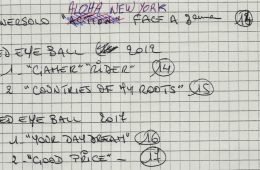 ALOHA NEW YORK
WERSOLO " " FACE A
ED EYE BALL 2019
1 - "GAMER" "RIDER" 14
2 "COUNTRIES OF MY ROOTS" 15
ED EYE BALL 2017
1 - "YOUR DAYDREAM" 16
2 - "GOOD PRICE" - 17